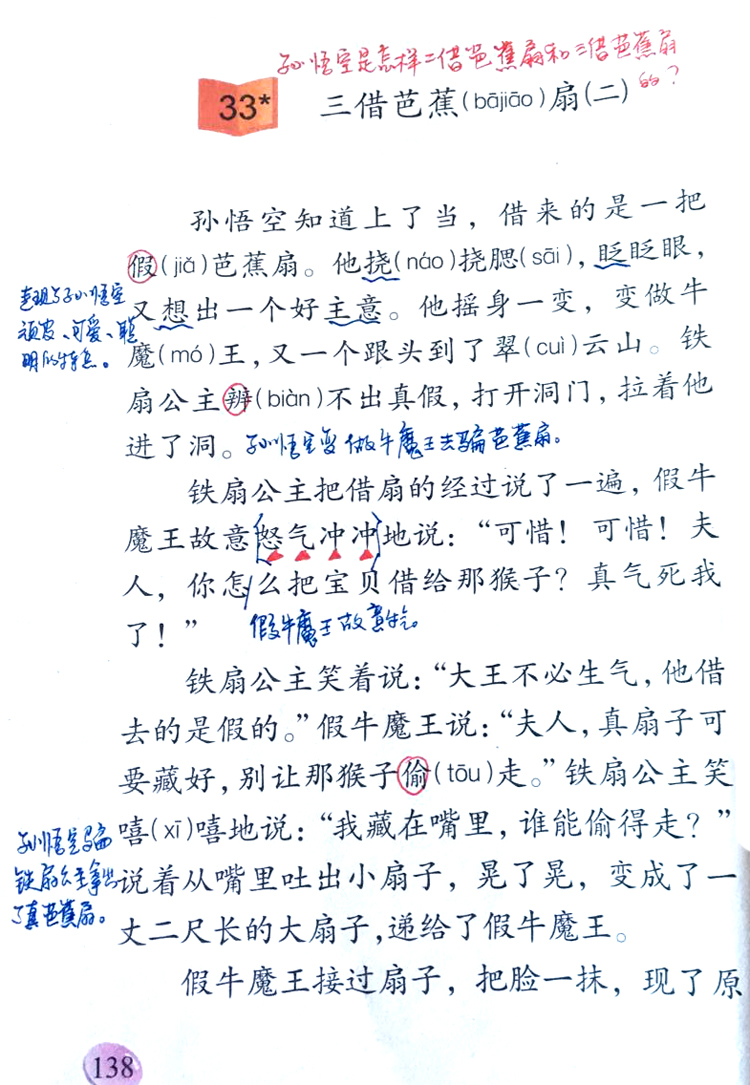 孙悟空是怎样二借芭蕉扇和三借芭蕉扇
的？
33* 三借芭蕉(bājiāo)扇(二)
孙悟空知道上了当，借来的是一把
假(jiǎ)芭蕉扇。他挠(náo)挠腮(sāi)，眨眨眼，
又想出一个好主意。他摇身一变，变做牛
表现了孙悟空
顽皮、可爱、聪
明的特点。
魔(mó)王，又一个跟头到了翠(cuì)云山。铁
扇公主辨(biàn)不出真假，打开洞门，拉着他
进了洞。孙悟空变做牛魔王去骗芭蕉扇。
铁扇公主把借扇的经过说了一遍，假牛
魔王故意怒气冲冲地说：“可惜！可惜！夫
人，你怎么把宝贝借给那猴子？真气死我
了！” 假牛魔王故意生气。
铁扇公主笑着说：“大王不必生气，他借
去的是假的。”假牛魔王说：“夫人，真扇子可
要藏好，别让那猴子偷(tōu)走。”铁扇公主笑
嘻(xī)嘻地说：“我藏在嘴里，谁能偷得走？”
孙悟空骗
铁扇公主拿出
了真芭蕉扇。
说着从嘴里吐出小扇子，晃了晃，变成了一
丈二尺长的大扇子，递给了假牛魔王。
假牛魔王接过扇子，把脸一抹，现了原
138